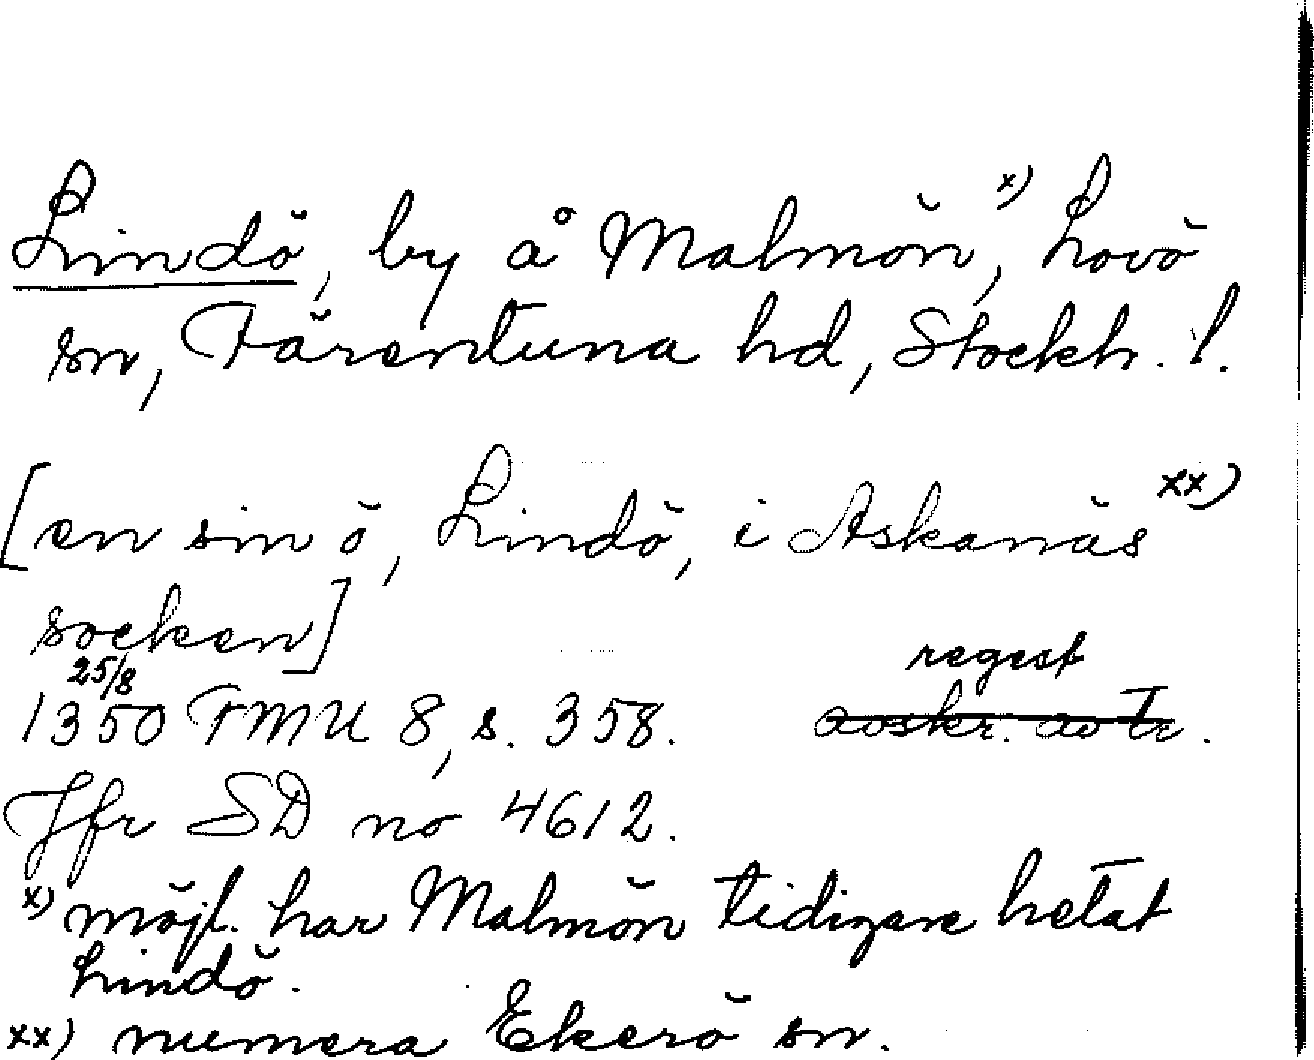 Lindö, by å Malmön, x) Lovö
sn, Färentuna hd, Stockh. l.
[en sin ö, Lindö, i Askanäs xx)
socken]
25/8
regest
1350 FMU 8, s. 358. avskr. av Tr.
Jfr SD no 4612.
x) möjl. har Malmön tidigare hetat
Lindö.
xx) numera Ekerö sn.